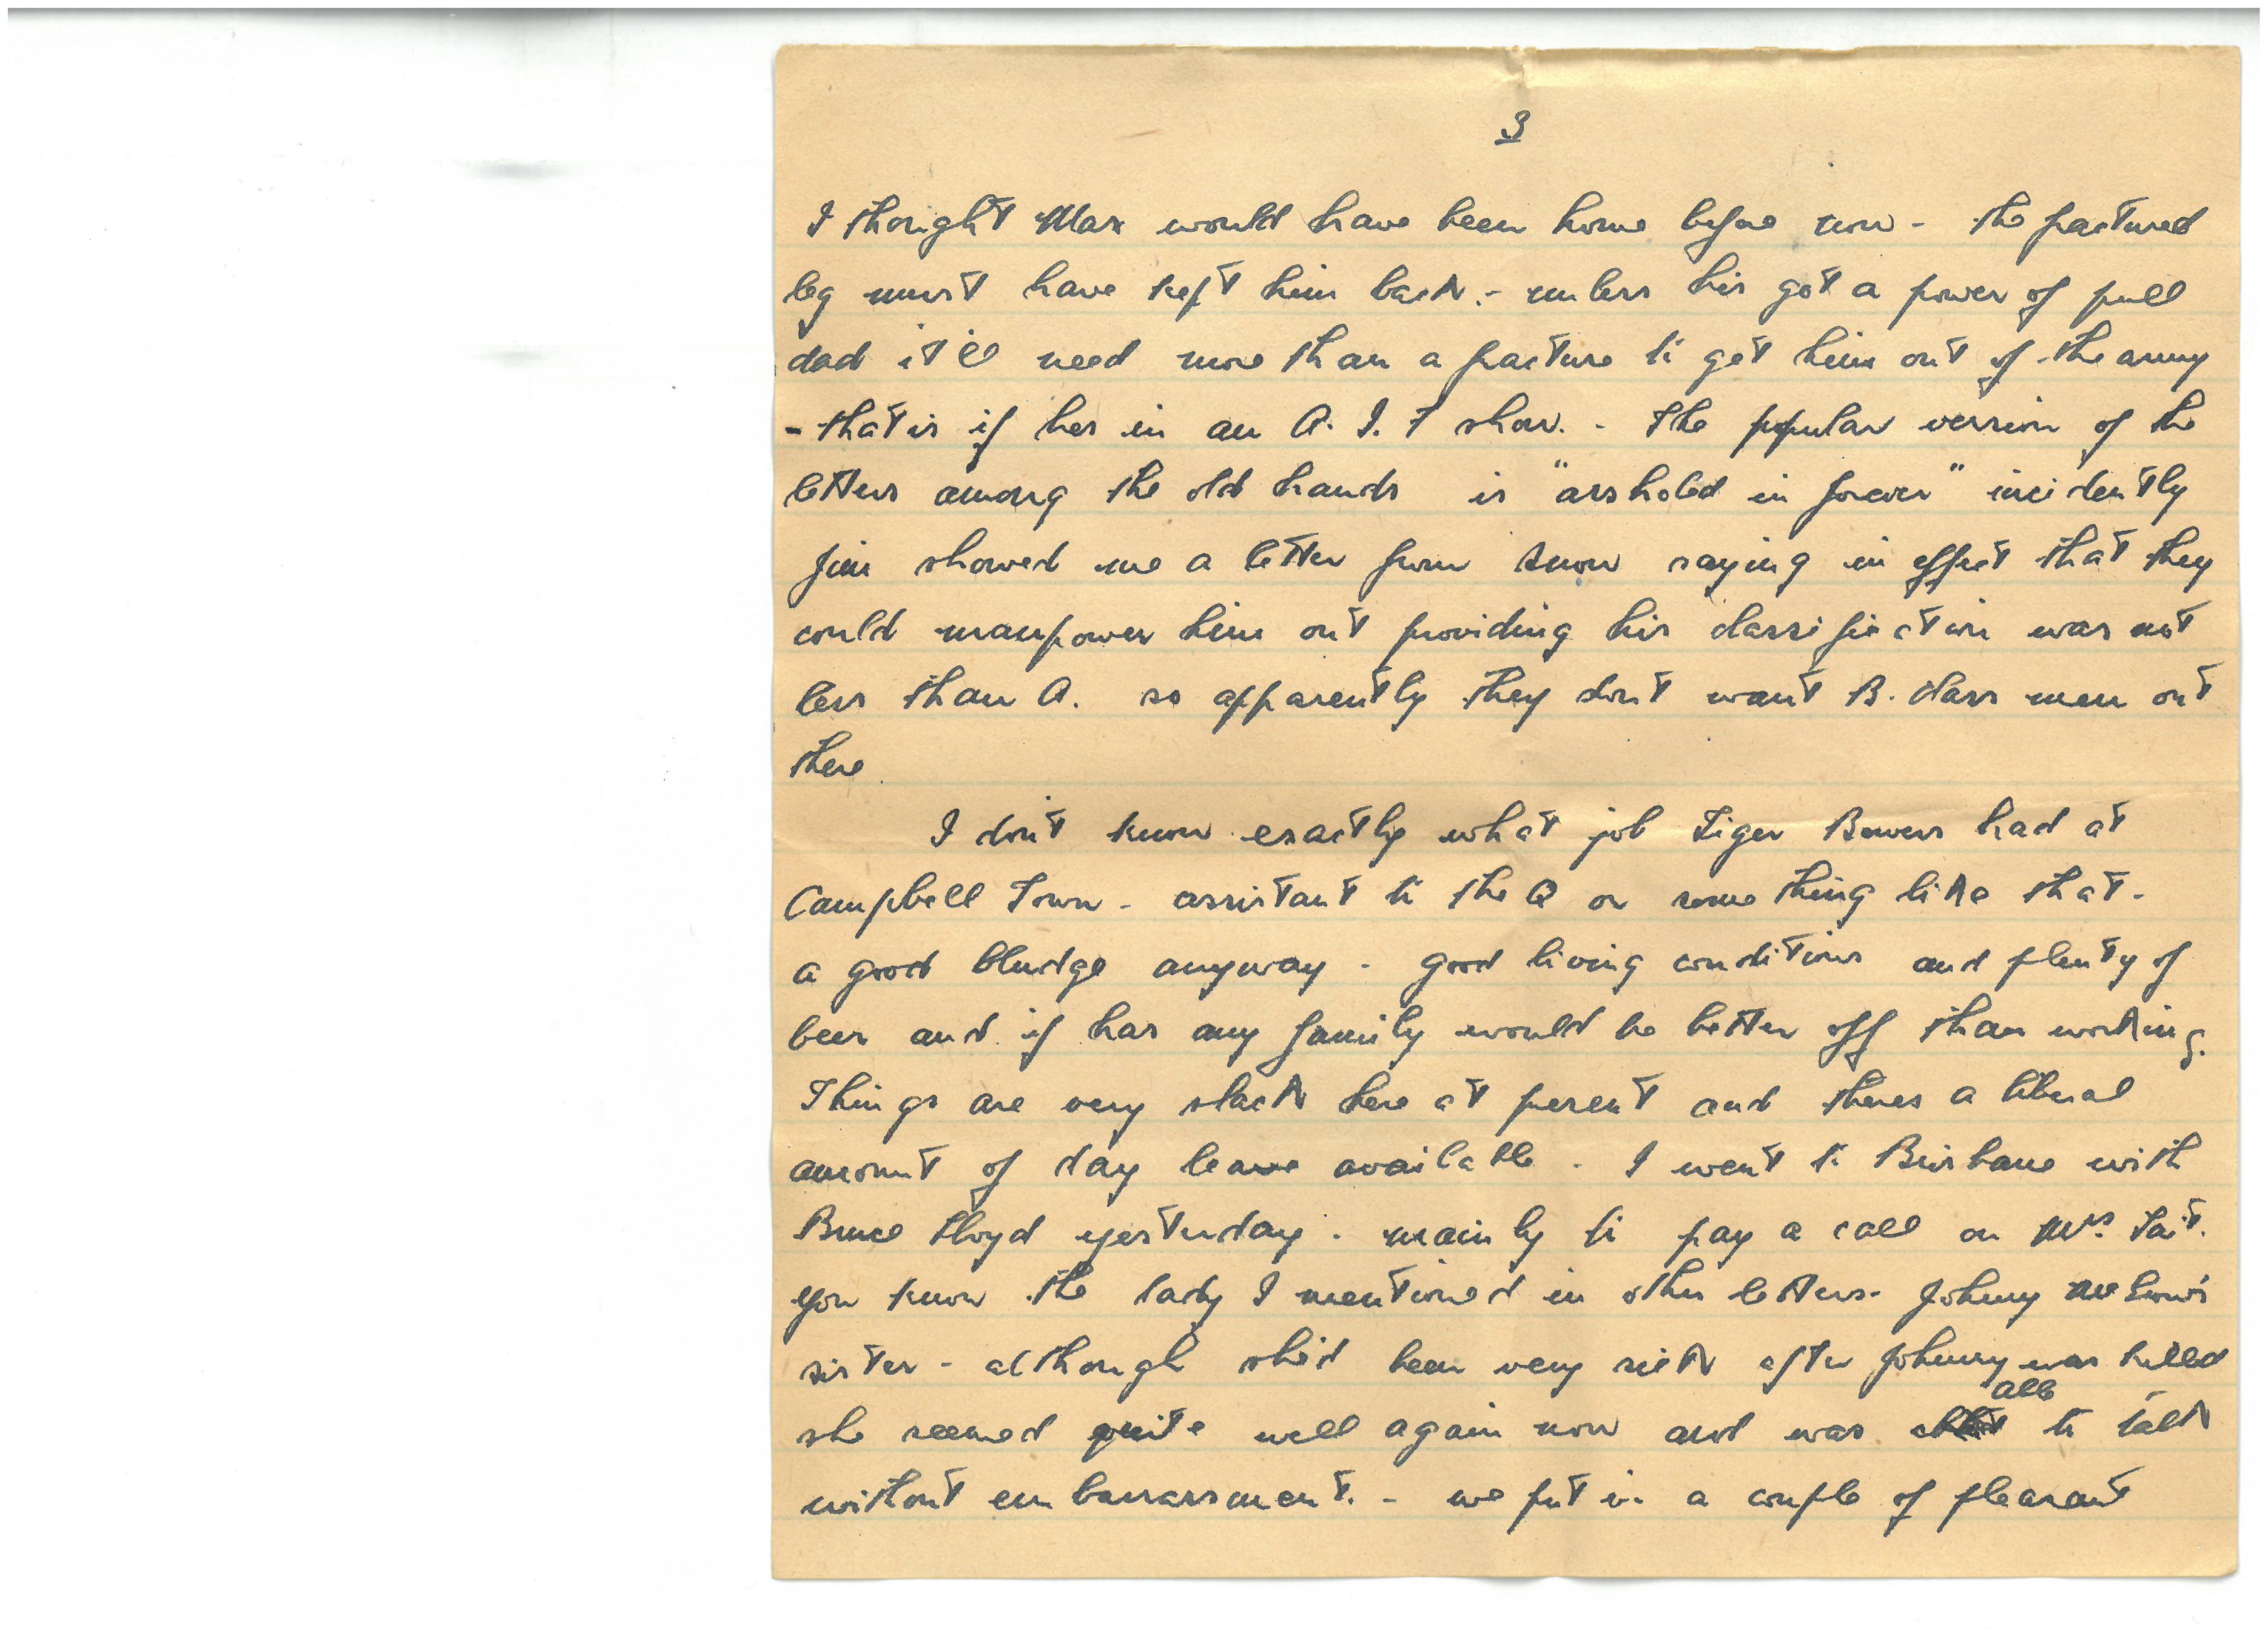 3
I thought Max would have been home before now - the fractured
leg must have kept him back. - unless his got a power of pull
dad it'll need more than a fracture to get him out of the army
- that is if hes in an A. I. F show. - The popular version of the
letters among the old hands is "arsholed in forever" incidently
Jim showed me a letter from Snow saying in effect that they
could manpower him out providing his classification was not
less than A. so apparently they don't want B. class men out
there
I don't know exactly what job Tiger Bowers had at
Campbell Town - assistant to the Q or something like that -
a good bludge anyway - good living conditions and plenty of
beer and if has any family would be better off than working.
Things are very slack here at present and theres a liberal
amount of day leave available - I went to Brisbane with
Bruce Lloyd yesterday - mainly to pay a call on Mrs. Tait.
you know the lady I mentioned in other letters - Johnny
sister - although she'd been very sick after Johnny was killed
she seemed quite well again now and was able to talk
without embarrassment. - we put in a couple of pleasant